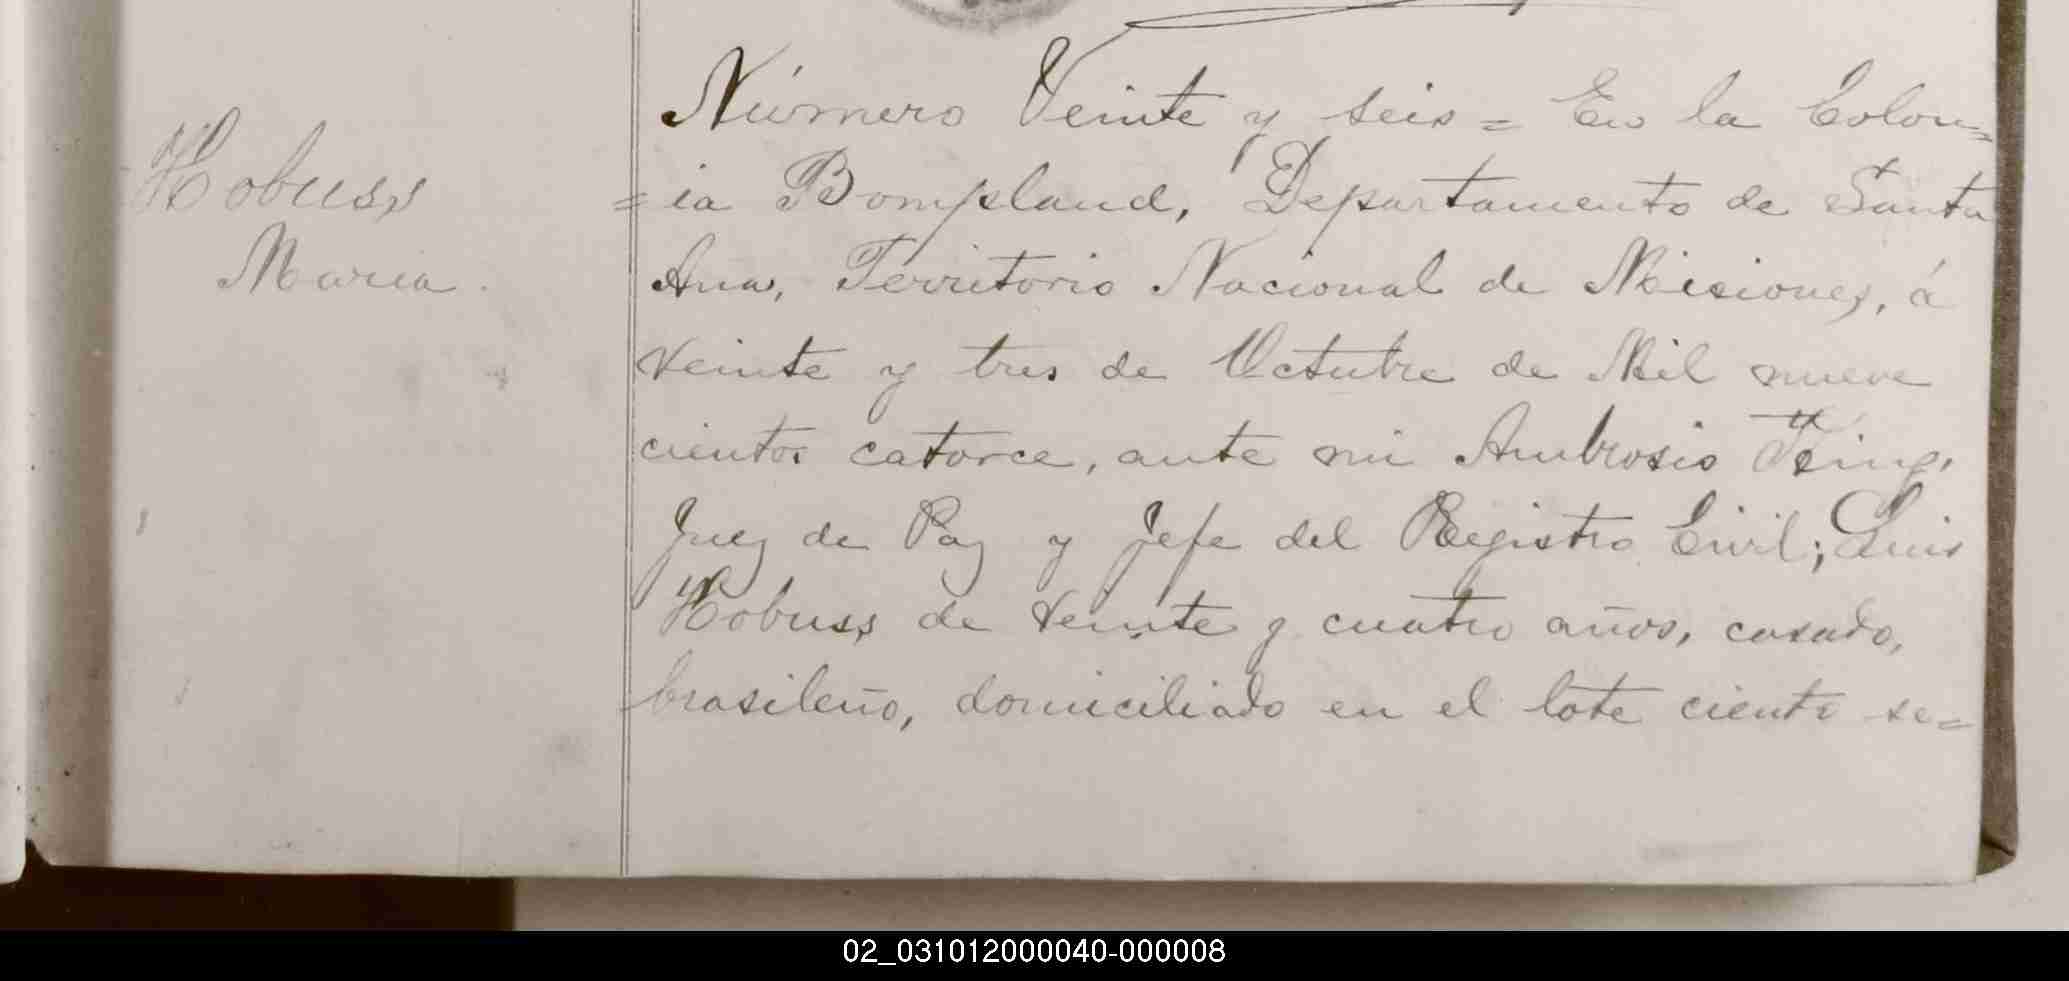 Número Veinte y seis = En la Colon=
Hobuss
=ia Bompland, Departamento de Santa
Maria.
Ana, Territorio Nacional de Misiones, á
veinte y tres de Octubre de Mil nueve
cientos catorce, ante mi Ambrosio
Juez de Paz y Jefe del Registro Civil; Luis
Hobuss de veinte y cuatro años, casado,
brasileño, domiciliado en el lote ciento se=
02_031012000040-000008